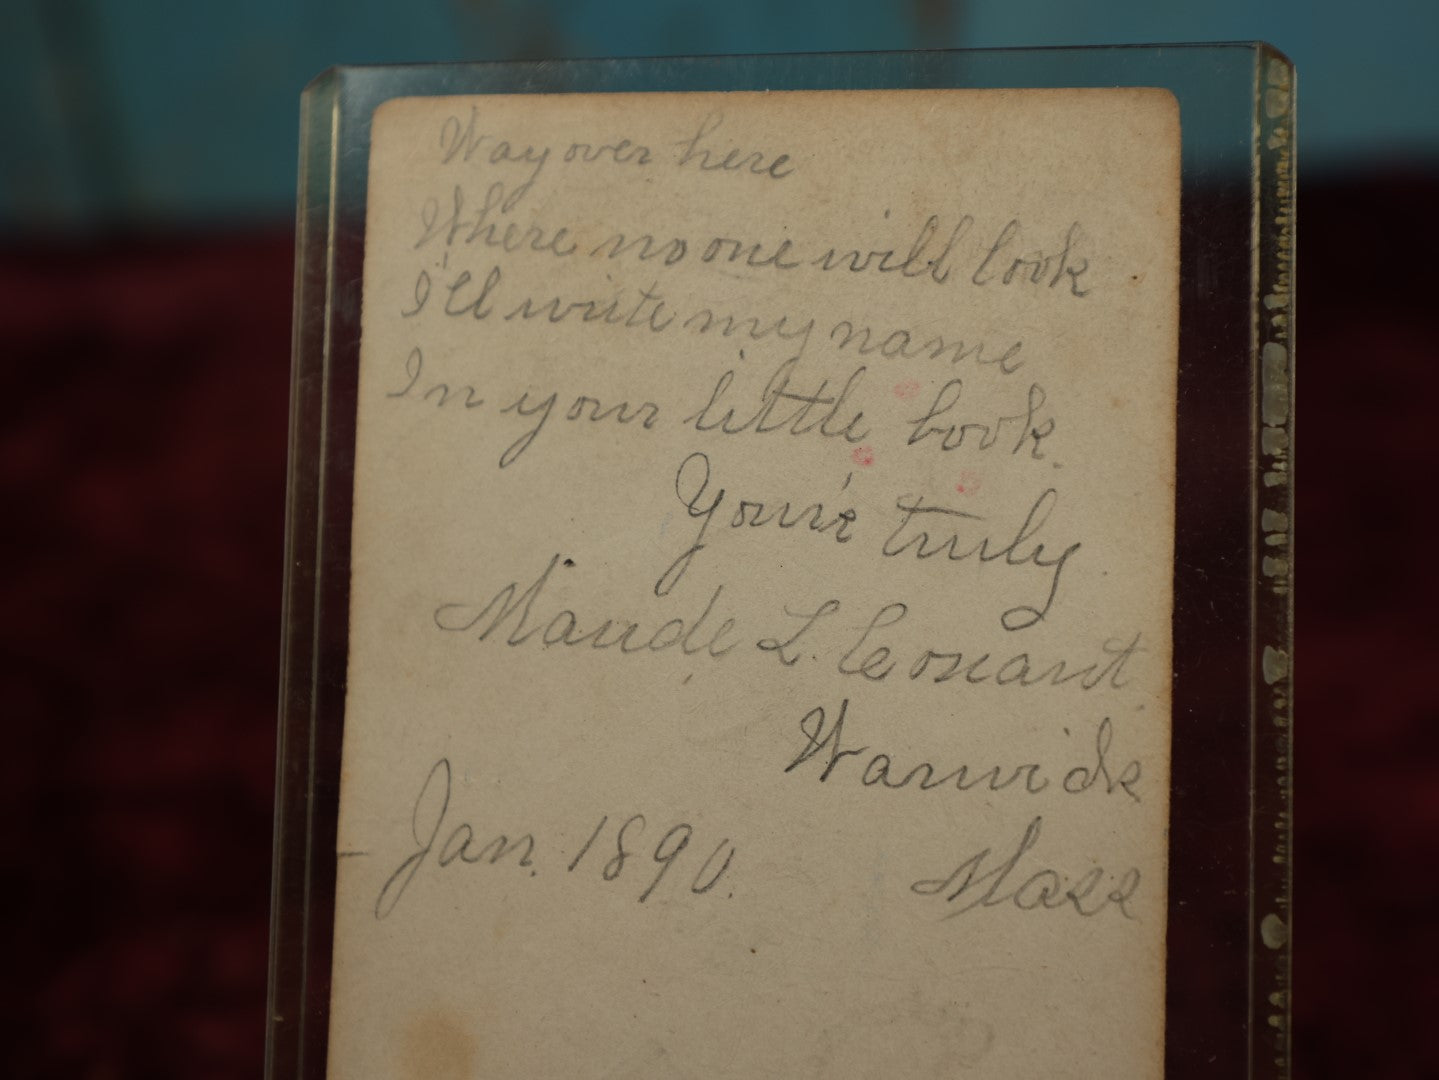 Way over here
Where no one will look
I'll write my name
In your little book.
Your's truly
Maude L. Leonard
Warwick
Jan. 1890. Mass